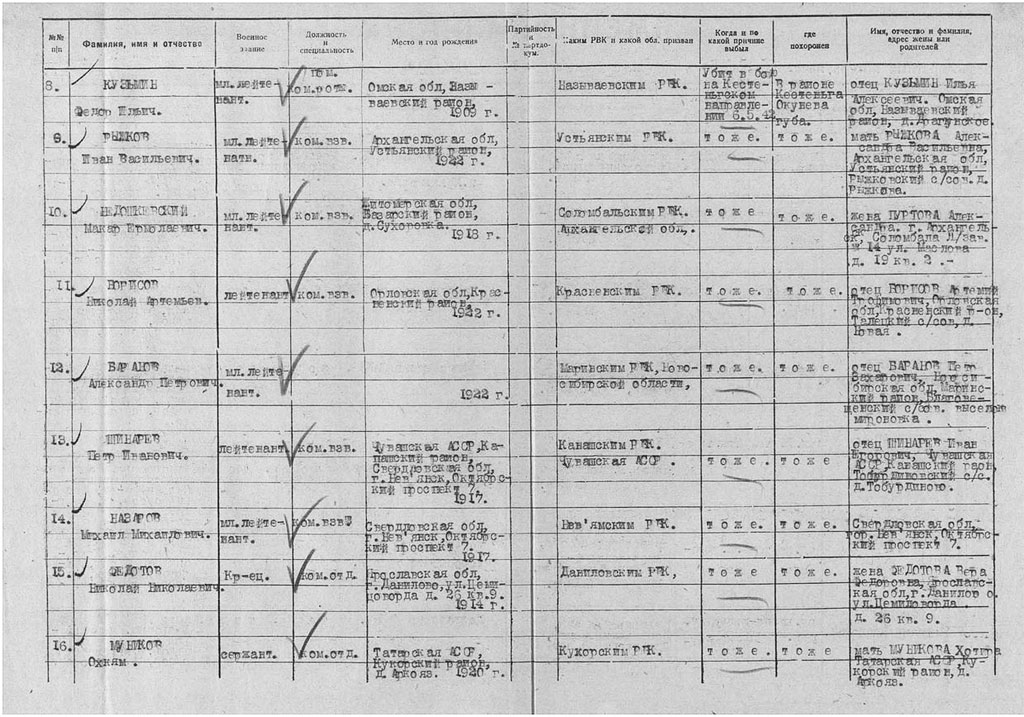 №№ п/п
Фамилия, имя и отчество
Военное звание
Должность и специальность
Место и год рождения
Партийность и № партдокум.
Каким РВК и какой обл. призван
Когда и по какой причине выбыл
где похоронен
Имя, отчество и фамилия, адрес жены или родителей
8.
КУЗЬМИН
Федор Ильич.
мл.лейте-
нант.
пом.
ком.роты.
Омская обл,Назы-
ваевский район,
1909 г.
Называевским РВК.
Убит в бою
на Кесте-
ньгском
направле-
нии 6.5.42
В районе
Кестеньга
Окунева
губа.
отец КУЗЬМИН Илья
Алексеевич. Омская
обл,Называевский
район, д.Драгунское.
9.
РЫЖКОВ
Иван Васильевич.
мл.лейте-
нант.
ком.взв.
Архангельская обл,
Устьянский район,
1922 г.
Устьянским РВК.
тоже.
тоже.
мать РЫЖКОВА Алек-
сандра Васильевна,
Архангельская обл,
Устьянский район,
Рыжковский с/сов.д.
Рыжкова.
10.
НЕДОШКЕВСКИЙ
Макар Ермолаевич.
мл.лейте-
нант.
ком.взв.
Житомерская обл,
Базарский район,
д.Сухоровка.
1918 г.
Соломбальским РВК.
Архангельской обл,.
тоже
тоже.
жена ПУРТОВА Алек-
сандра. г.Архангель-
ск, Соломбала Л/зав.
№ 14 ул. Маслова
д. 19 кв. 2 .-
11.
БОРИСОВ
Николай Артемьев.
лейтенант
ком.взв.
Орловская обл,Крас-
ненский район,
1922 г.
Красненским РВК.
тоже.
тоже.
отец БОРИСОВ Артемий
Трофимович,Орловская
обл,Красненский р-он,
Талецкий с/сов,д.
Новая .
12.
БАРАНОВ
Александр Петрович.
мл.лейте-
нант.
1922 г.
Маринским РВК,Ново-
сибирской области,
тоже.
тоже.
отец БАРАНОВ Петр
Захарович, Новоси-
бирская обл,Маринс-
кий район,Благове-
щенский с/сов. выселок
мироновка .
13.
ШИНАРЕВ
Петр Иванович.
лейтенант
ком.взв.
Чувашская АССР,Ка-
нашский район,
Свердловская обл,
г.Нев'янск,Октябрс-
кий проспект 7,
1917.
Канашским РВК.
Чувашская АССР .
тоже.
тоже
отец ШИНАРЕВ Иван
Егорович, Чувашская
АССР,Канашский район,
Тобурдиновский с/с.
д.Тобурдиново.
14.
НАЗАРОВ
Михаил Михайлович.
мл.лейте-
нант.
ком.взв
Свердловская обл,
г.Нев'янск,Октябрс-
кий проспект 7.
1917.
Нев'ямским РВК.
тоже.
тоже.
Свердловская обл,
гор.Нев'янск,Октябрс-
кий проспект 7.
15.
ФЕДОТОВ
Николай Николаевич.
Кр-ец.
ком.отд.
Ярославская обл,
г.Данилово,ул.Деми-
доворда д. 26 кв.9.
1914 г.
Даниловским РВК,
тоже
тоже.
жена ФЕДОТОВА Вера
Федоровна,Ярославс-
кая обл,г.Данилов о
ул.Демидоворда .
д. 26 кв. 9.
16.
МУНИКОВ
Охням .
сержант.
ком.отд.
Татарская АССР,
Кукорский район,
д. Аркояз. 1920 г.
Кукорским РВК.
тоже.
тоже
мать МУНИКОВА Хотира
Татарская АССР,Ку-
корский район,д.
Аркояз.